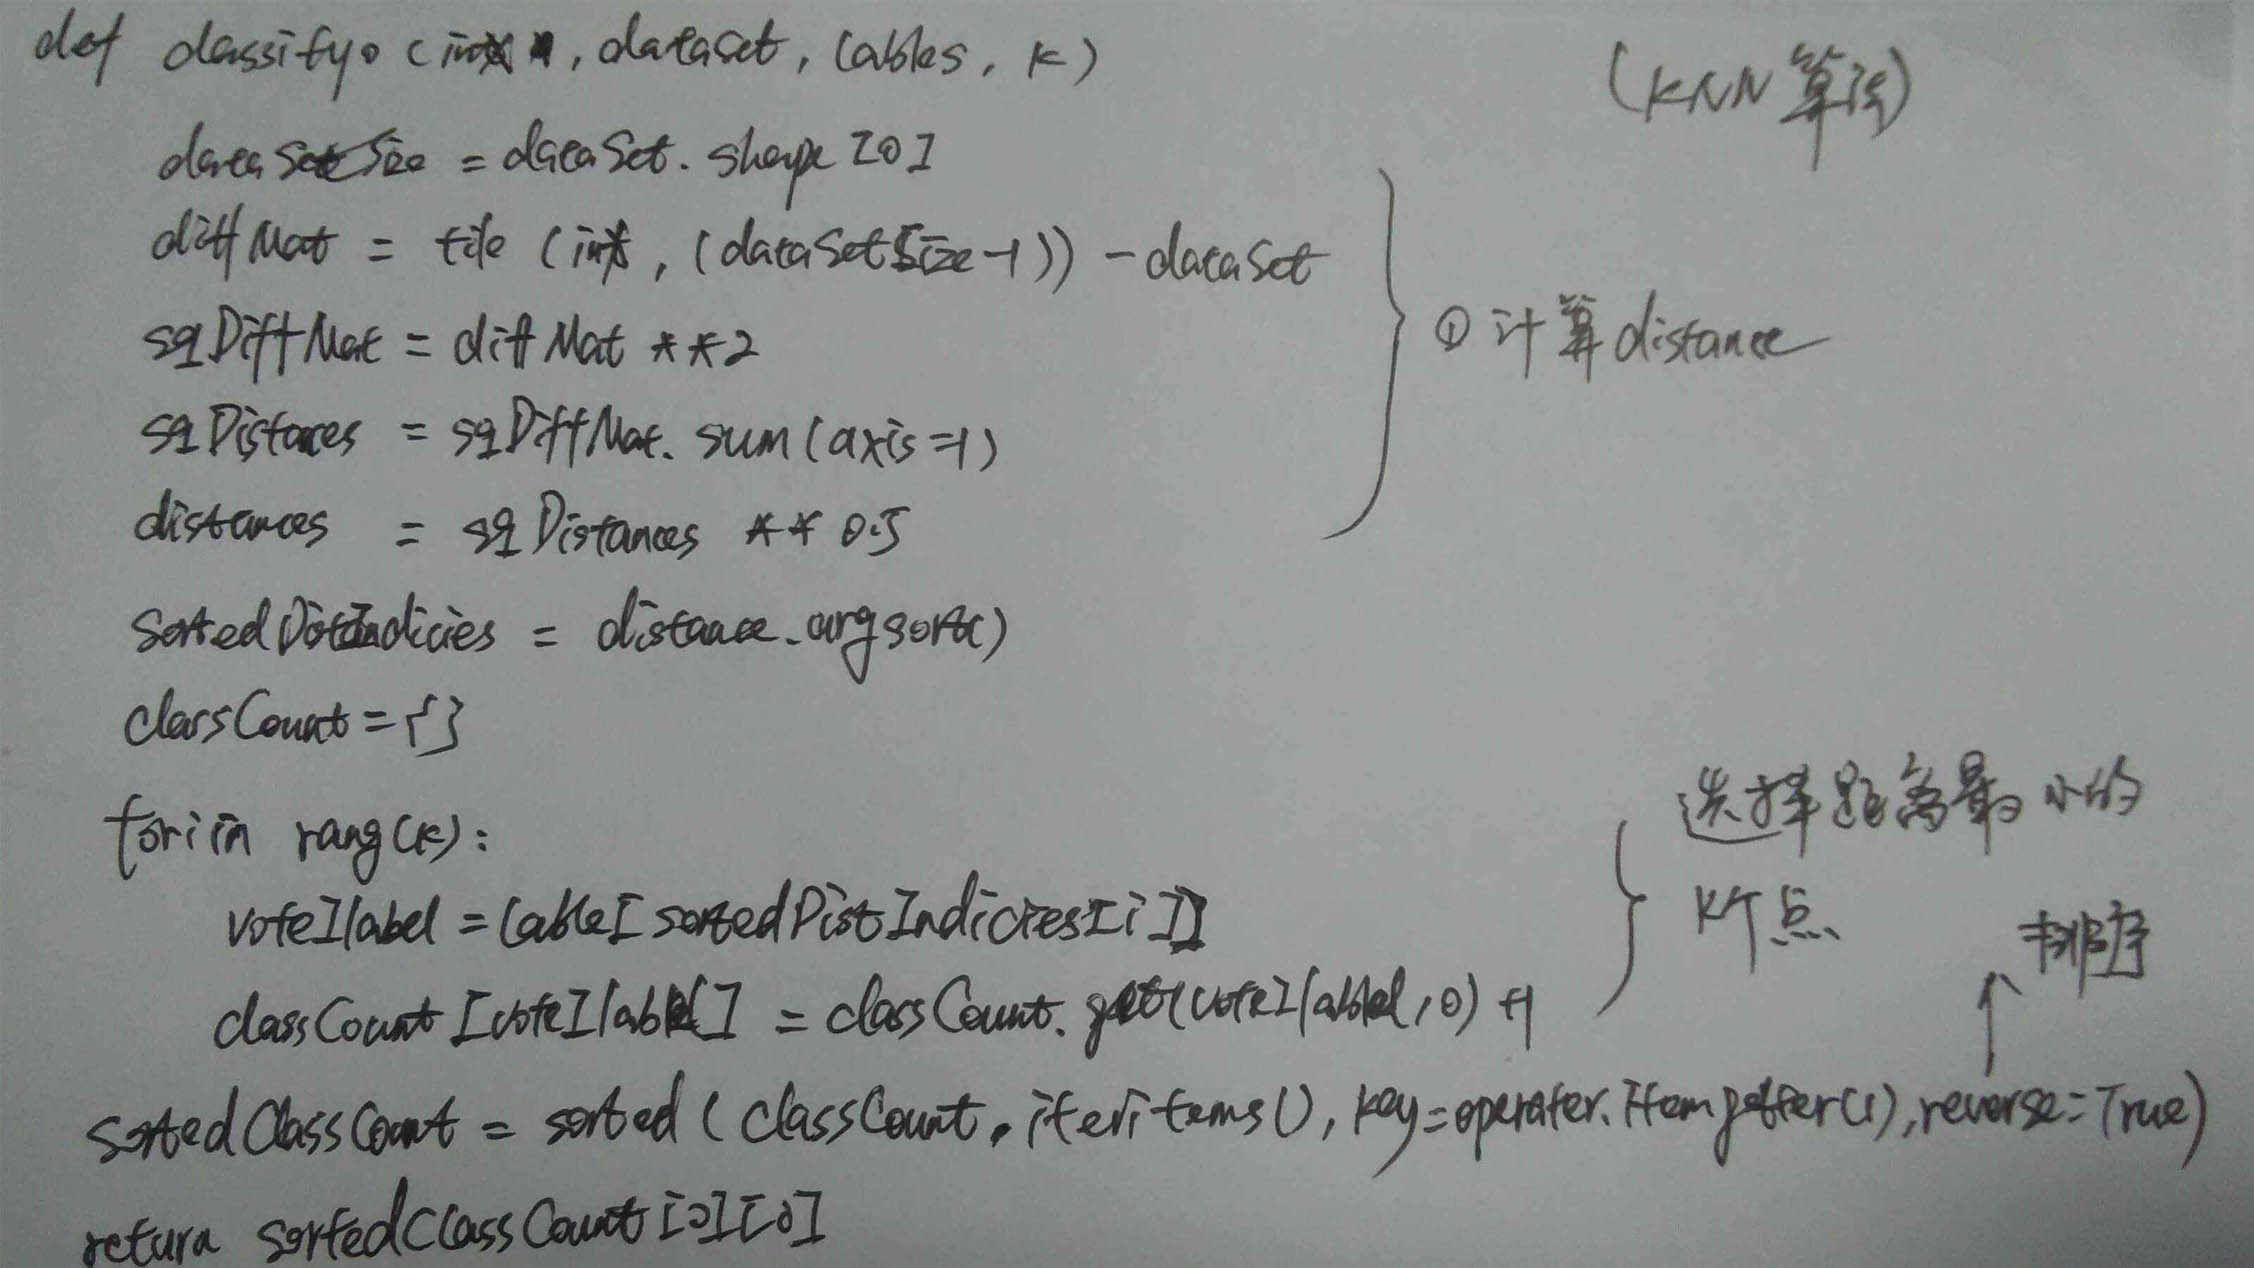 def classify0 (inX, dataSet, lables, k)
(KNN 算法)
dataSetSize = dataSet. shape [0]
diffMat = tile (inX, (dataSetSize-1)) - dataSet
sqDiffMat = diffMat **2
① 计算distance
sqDistaces = sqDiffMat. sum (axis=1)
distances = sqDistances ** 0.5
sortedDistIndicies = distance.argsort()
classCount = {}
for i in rang(k):
选择距离最小的
K个点
voteIlabel = lable[sortedDistIndicies[i]]
排序
classCount [voteIlabel] = classCount. get(voteIlabel, 0) +1
sortedClassCount = sorted (classCount. iteritems(), key=operater.itemgetter(1), reverse=True)
return sortedClassCount[0][0]